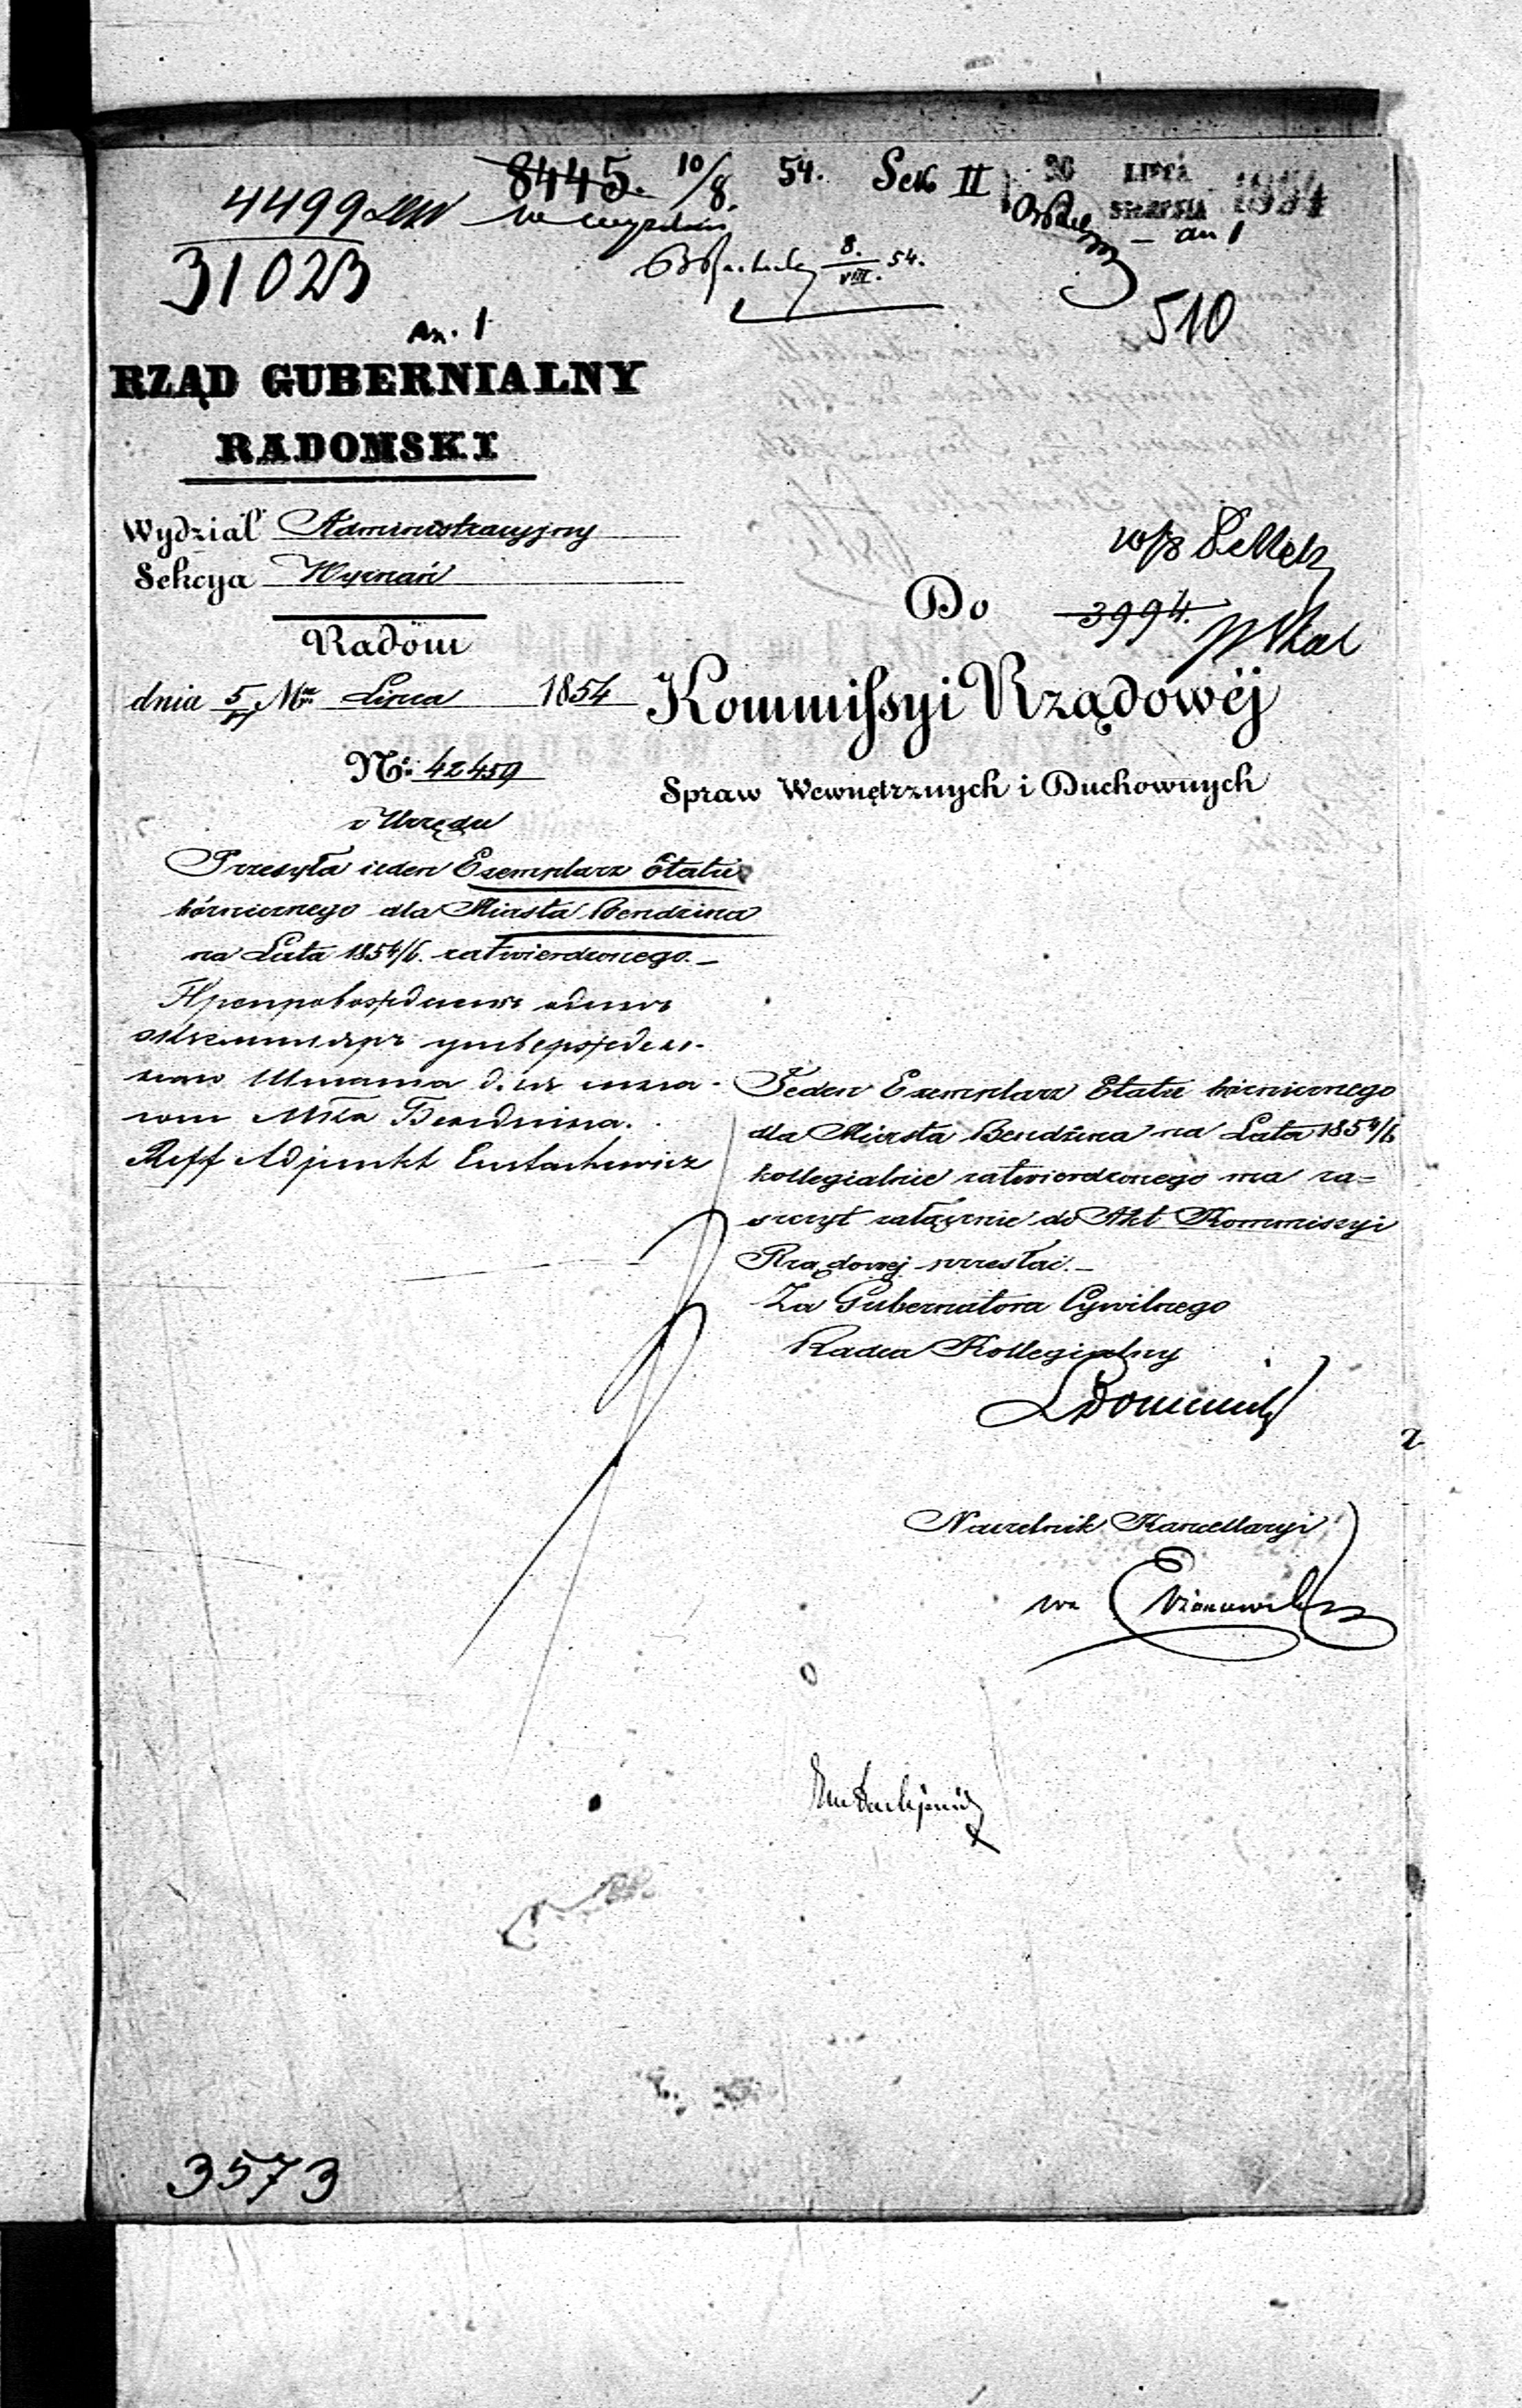 8445. 10/8. 54. Sek II 26 LIPCA 1854
4499
SIERPNIA
an 1
31023
8. VIII. 54.
510
an. 1
RZĄD GUBERNIALNY
RADOMSKI
Wydział Administracyjny
Sekcya Wyznań
Radom
dnia 5/17 Mca Lipca 1854
No. 42459
z Urzędu
Przesyła ieden Exemplarz Etatu
bóżnicznego dla Miasta Bendzina
na Lata 1854/6. zatwierdzonego.
Препровождение одного
экземпляра утвержден-
Штата для
Бендзина.
Reff Adjunkt Eustachewicz
Do 3994.
Kommissyi Rządowéj
Spraw Wewnętrznych i Duchownych
Jeden Exemplarz Etatu bóżnicznego
dla Miasta Bendzina na Lata 1854/6
kollegialnie zatwierdzonego ma za=
szczyt załącznie do Akt Kommissyi
Rządowej przesłać.
Za Gubernatora Cywilnego
Radca Kollegialny
Naczelnik Kancellaryi
3573